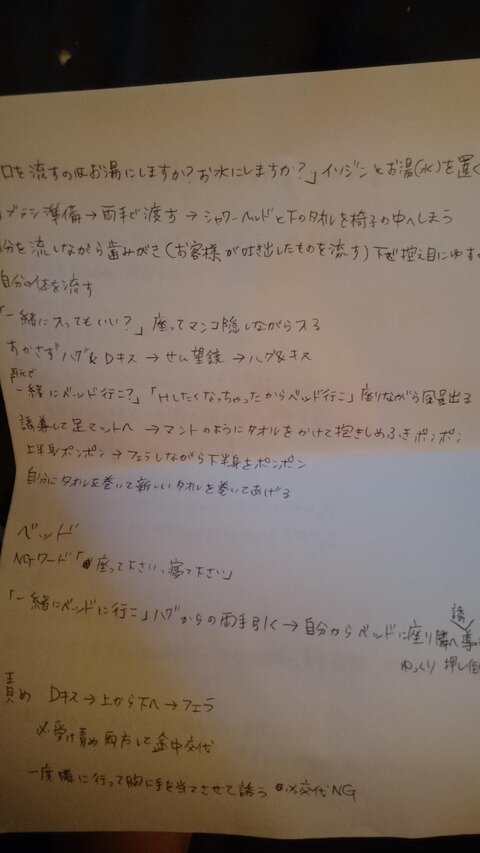 口を流すのはお湯にしますか?お水にしますか?」イソジンとお湯(水)を置く
ブラシ準備→両手で渡す→シャワーヘッドと下のタオルを椅子の中へしまう
分を流しながら歯みがき(お客様が吐き出したものを流す)下で控え目にゆす
自分の体を流す
「一緒に入ってもいい?」座ってマンコ隠しながら入る
あかさずハグ&Dキス→せん望鏡→ハグ&キス
耳元で
一緒にベッド行こ?」「Hしたくなっちゃったからベッド行こ」座りながら風呂出る
誘導して足マットへ→マントのようにタオルをかけて抱きしめふきポンポン
上半身ポンポン→フェラしながら下半身をポンポン
自分にタオルを巻いて新しいタオルを巻いてあげる
ベッド
NGワード「座って下さい、寝て下さい」
「一緒にベッドに行こ」ハグからの両手引く→自分からベッドに座り隣へ誘導
ゆっくり押し倒
責め Dキス→上から下へ→フェラ
※受け責め両方して途中交代
一度横に行って胸に手を当てさせて誘う ※交代NG